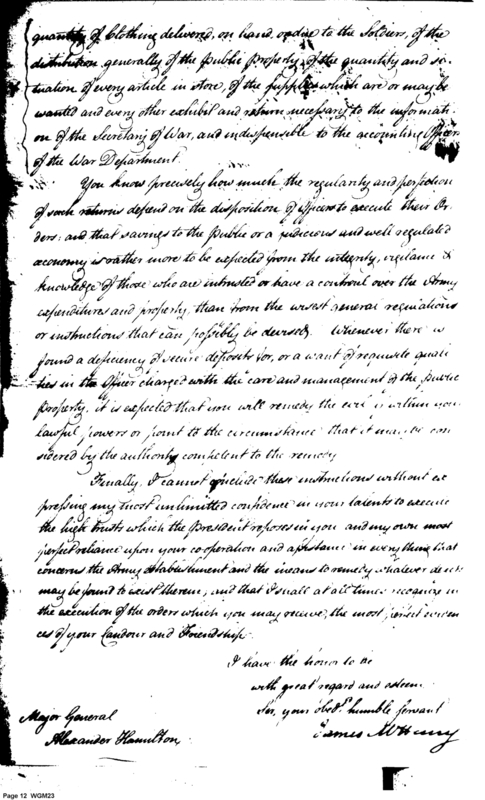 quantity of Clothing delivered, on hand, or due to the Soldiers, of the
distribution generally of the Public Property, of the quantity and si-
tuation of every article in store, of the supplies which are or may be
wanted and every other exhibit and return necessary to the informati-
on of the Secretary of War, and indispensible to the accounting Officers
of the War Department.
You know precisely how much the regularity and perfection
of such returns depend on the disposition of Officers to execute their Or-
ders; and that savings to the Public or a judicious and well regulated
œconomy is rather more to be expected from the integrity, vigilance &
knowledge of those who are intrusted or have a controul over the Army
expenditures and property, than from the wisest general regulations
or instructions that can possibly be devised. Whenever there is
found a deficiency of secure deposits for, or a want of requisite quali-
ties in the Officer charged with the care and management of the Public
Property, it is expected that you will remedy the evil if within your
lawful powers or point to the circumstance that it may be con-
sidered by the authority competent to the remedy
Finally, I cannot conclude these instructions without ex-
pressing my most unlimitted confidence in your talents to execute
the high trusts which the President reposes in you and my own most
perfect reliance upon your co-operation and assistance in every thing that
concerns the Army Establishment and the means to remedy whatever defects
may be found to exist therein; and that I shall at all times recognize in
the execution of the orders which you may receive, the most perfect eviden-
ces of your Candour and Friendship.
I have the honor to be
with great regard and esteem
Sir, your obedt. humble servant
James McHenry
Major General
Alexander Hamilton
Page 12 WGM23